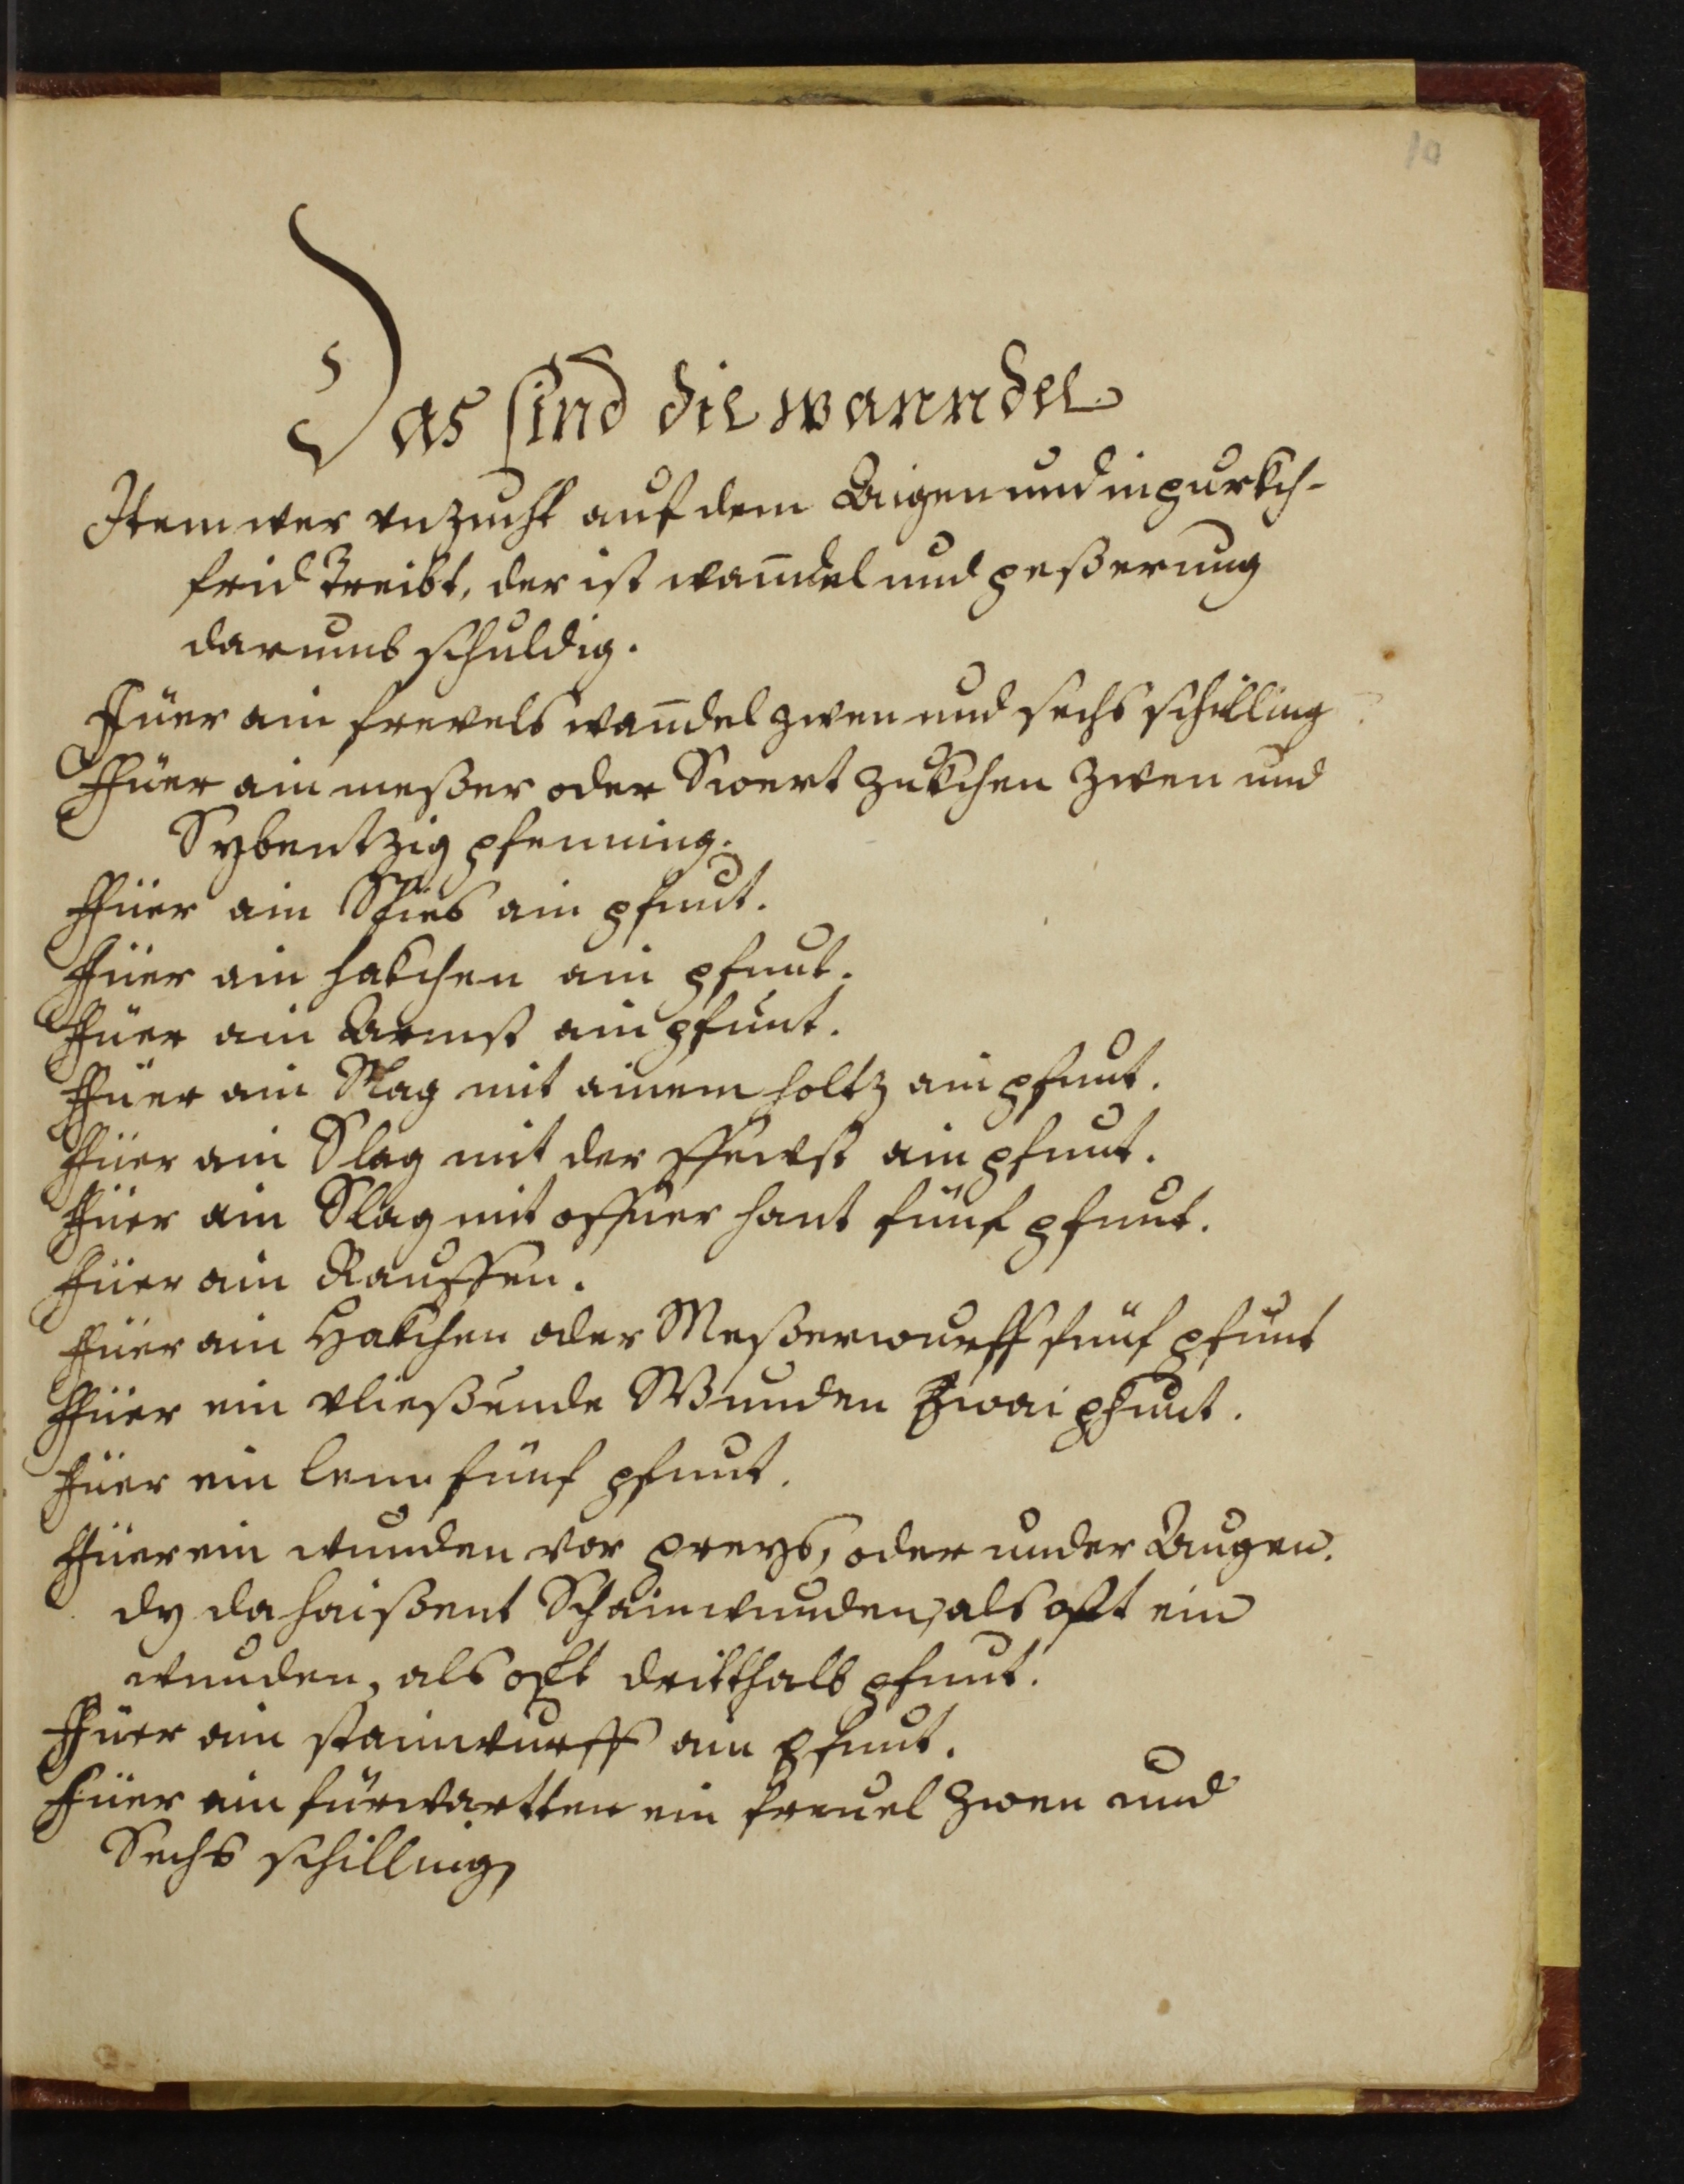 10
Das sind die wanndel
Item wer vnzucht auf dem Aigen und in purkch-
frid Treibt, der ist wandel und peßerung
darumb schuldig.
Füer ain frevels wandel zwen und sechs schilling
Füer ain meßer oder Swert zukchen zwen und
Sybentzig pfenning.
Füer ain Spies ain pfunt.
Füer ain hakchen ain pfunt.
Füer ain Armst ain pfunt.
Füer ain Slag mit ainem holtz ain pfunt.
Füer ain Slag mit der ffewst ain pfunt.
Füer ain Slag mit offner hant fünf pfunt.
Füer ain Rauffen.
Füer ain Hakchen oder Meßerwurff fünf pfunt
Füer ein vließende Wunden Zwai pfunt.
Füer ein lem fünf pfunt.
Füer ein wunden vor preys, oder under Augen.
dy da haißent Schainwunden, als offt ein
wunden, als offt dritthalb pfunt.
Füer ain stainwurff ain pfunt.
Füer ain fürwartten ein freuel zwen und
Sechs schilling,